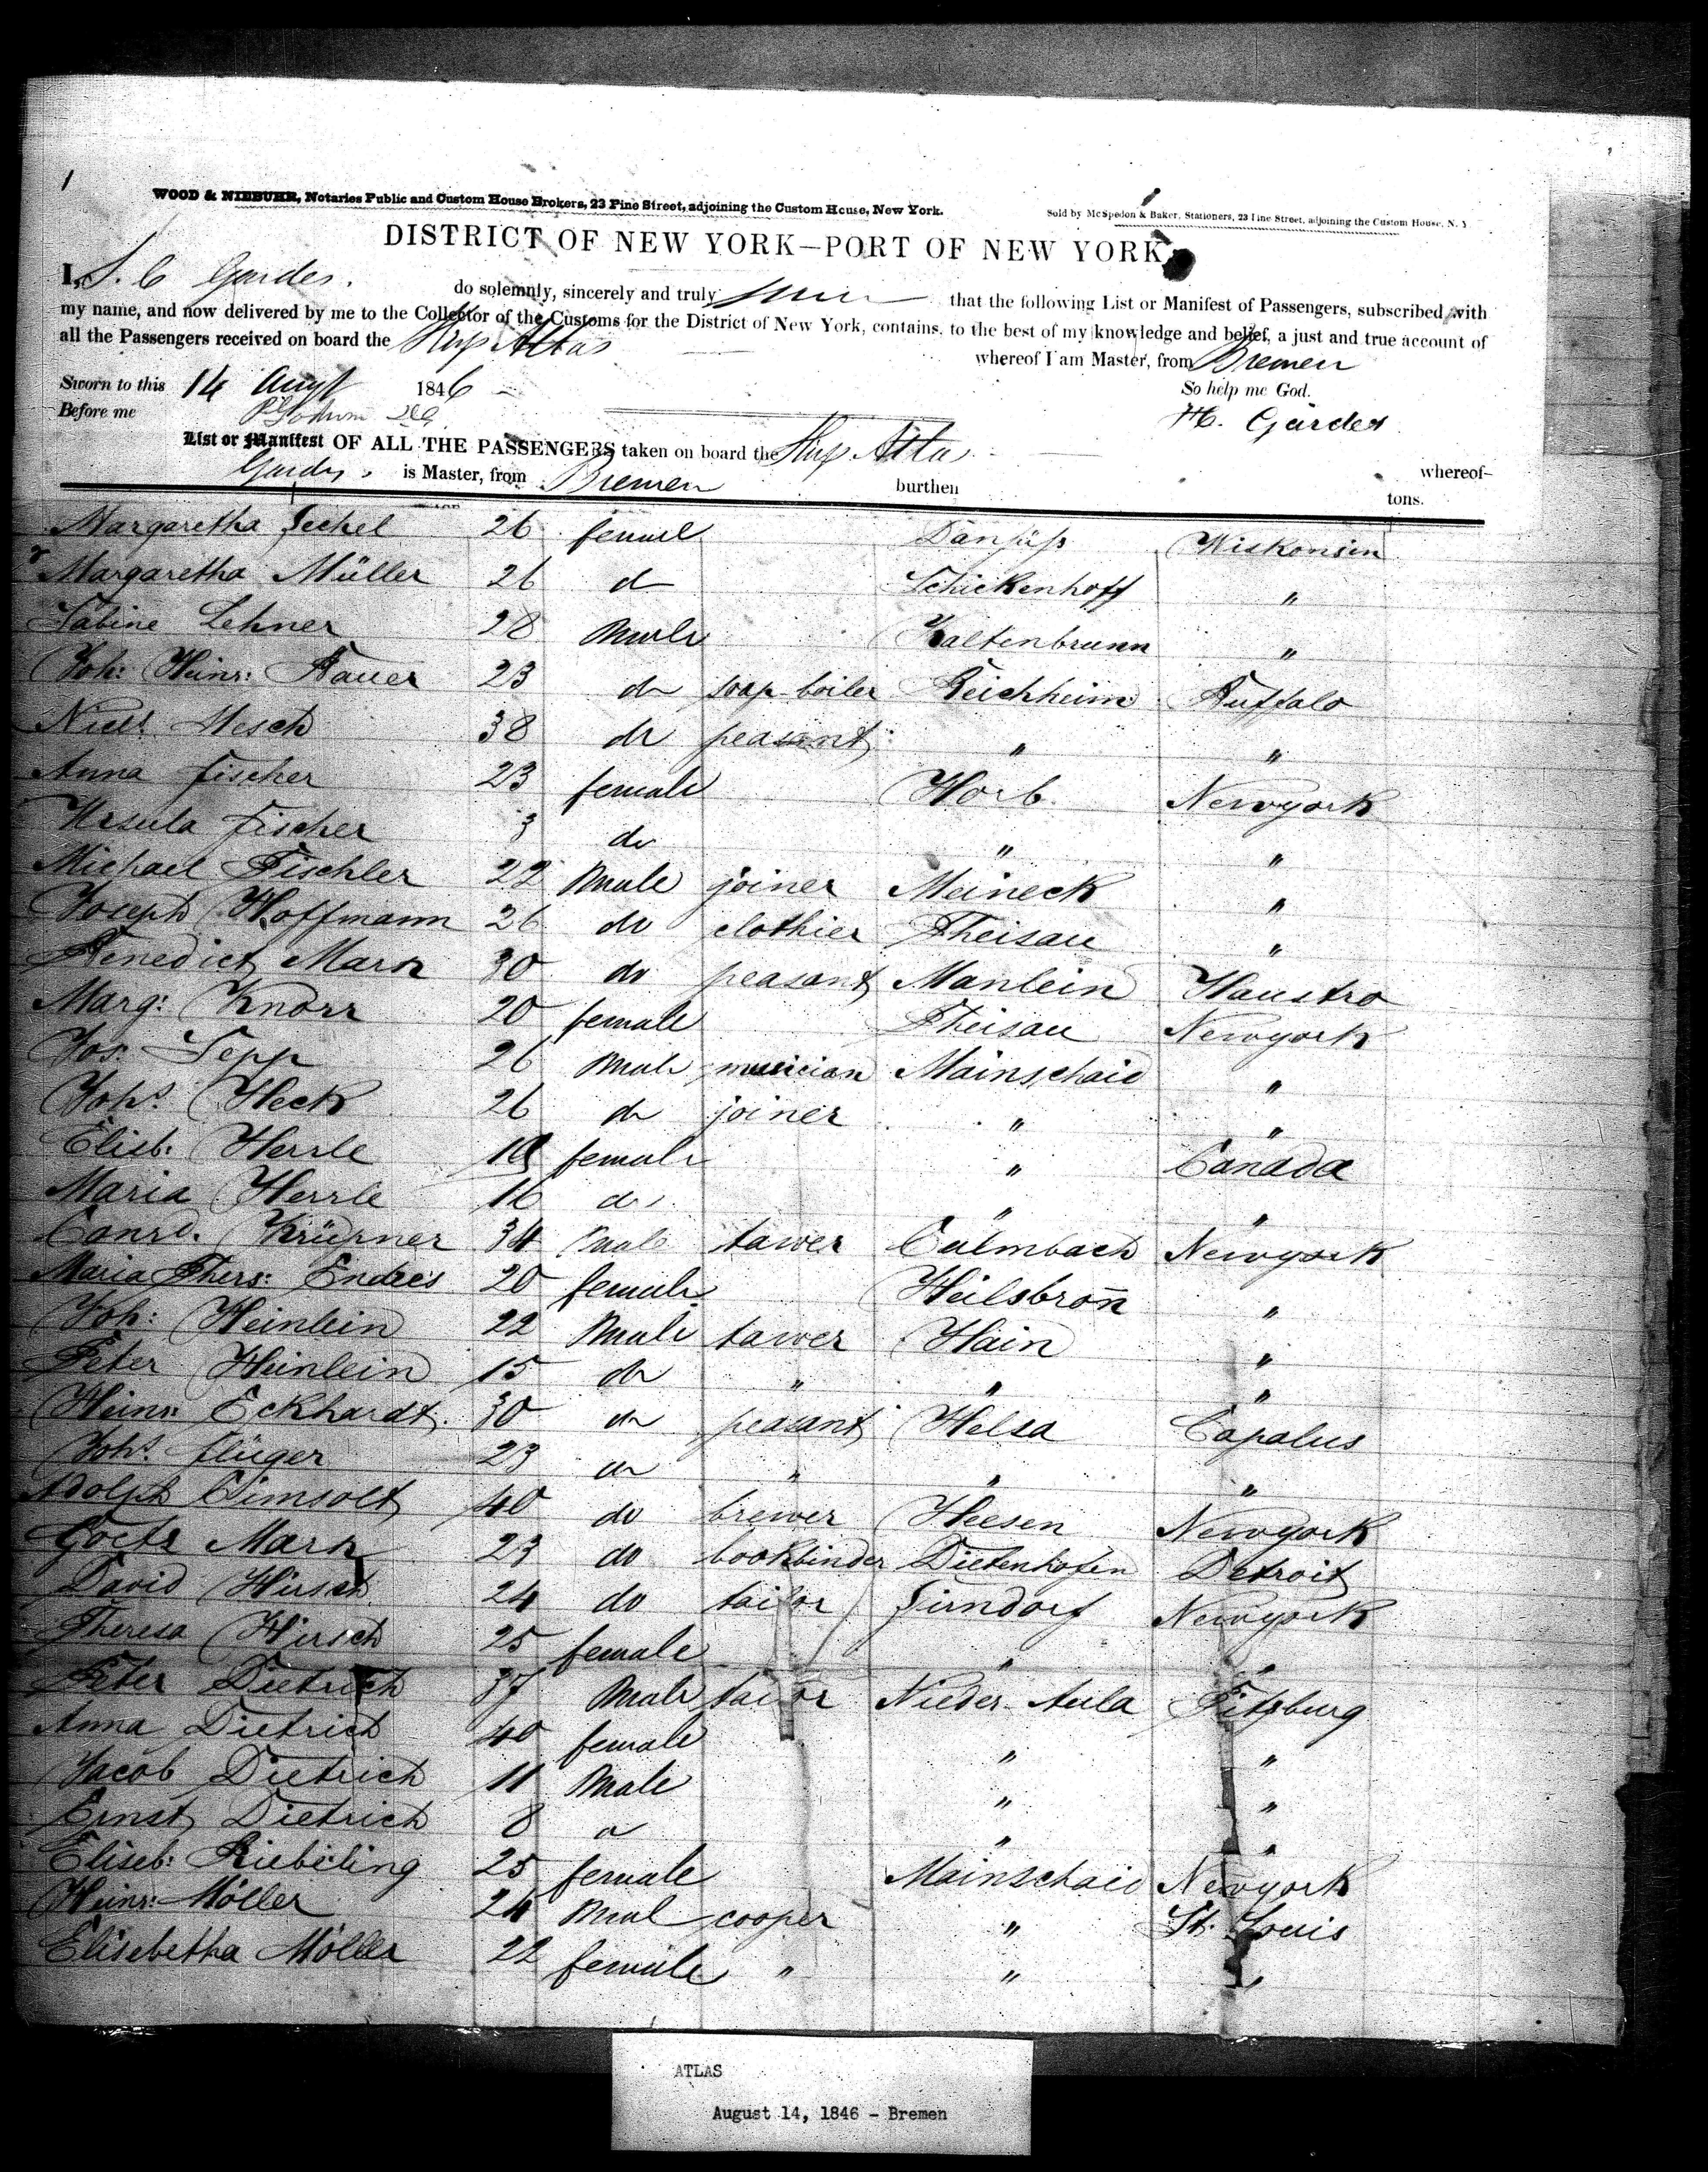 1
WOOD & NIEBUHR, Notaries Public and Custom House Brokers, 23 Pine Street, adjoining the Custom House, New York.
Sold by McSpedon & Baker, Stationers, 23 Pine Street, adjoining the Custom House, N. Y
DISTRICT OF NEW YORK—PORT OF NEW YORK
I, Gardes. do solemnly, sincerely and truly that the following List or Manifest of Passengers, subscribed with
my name, and now delivered by me to the Collector of the Customs for the District of New York, contains, to the best of my knowledge and belief, a just and true account of
all the Passengers received on board the Ship Atlas whereof I am Master, from Bremen
Sworn to this 14 Augt 1846 So help me God.
Before me H. Gärdes
List or Manifest OF ALL THE PASSENGERS taken on board the Ship Atlas whereof
Gardes is Master, from Bremen burthen tons.
Margaretha 26 femal Wiskonsin
Margaretha Müller 26 do Schickenhoff "
Sabine Lehner 28 Male Kaltenbrunn "
Joh: Heinr: Bauer 23 do soap boiler Reichheim Buffalo
Nicl: Mesch 38 do peasant " "
Anna Fischer 23 female Horb Newyork
Ursula Fischer 3 do " "
Michael Fischler 22 Male joiner Meineck "
Joseph Hoffmann 26 do clothier Theisau "
Benedict Marx 30 do peasant Manlein Haustro
Marg: Knorr 20 female Theisau Newyork
Jos: Sepp 26 Male musician Mainschaid "
Johs. Heck 26 do joiner " "
Elisb: Herrle 18 female " Canada
Maria Herrle 16 do " "
Conrd. 34 Male tawer Culmbach Newyork
Maria Thers: Endres 20 female Heilsbron̄ "
Joh: Heinlein 22 Male tawer Hain "
Peter Heinlein 15 do " " "
Heinr: Eckhardt 30 do peasant Helsa Capalus
Johs. Flüger 23 do " " "
Adolph Cimsolt 40 do brewer Heesen Newyork
Goetz Marx 23 do bookbinder Dietenhofen Detroit
David Hirsch 24 do tailor Firndorf Newyork
Theresa Hirsch 25 female " "
Peter Dietrich 37 Male tailor Nieder Aula Pitsburg
Anna Dietrich 40 female " "
Jacob Dietrich 11 Male " "
Ernst Dietrich 8 do " "
Eliseb: Riebeling 25 female Mainschaid Newyork
Heinr: Möller 24 Mal cooper " St. Louis
Elisebetha Möller 22 female " " "
ATLAS
August 14, 1846 - Bremen